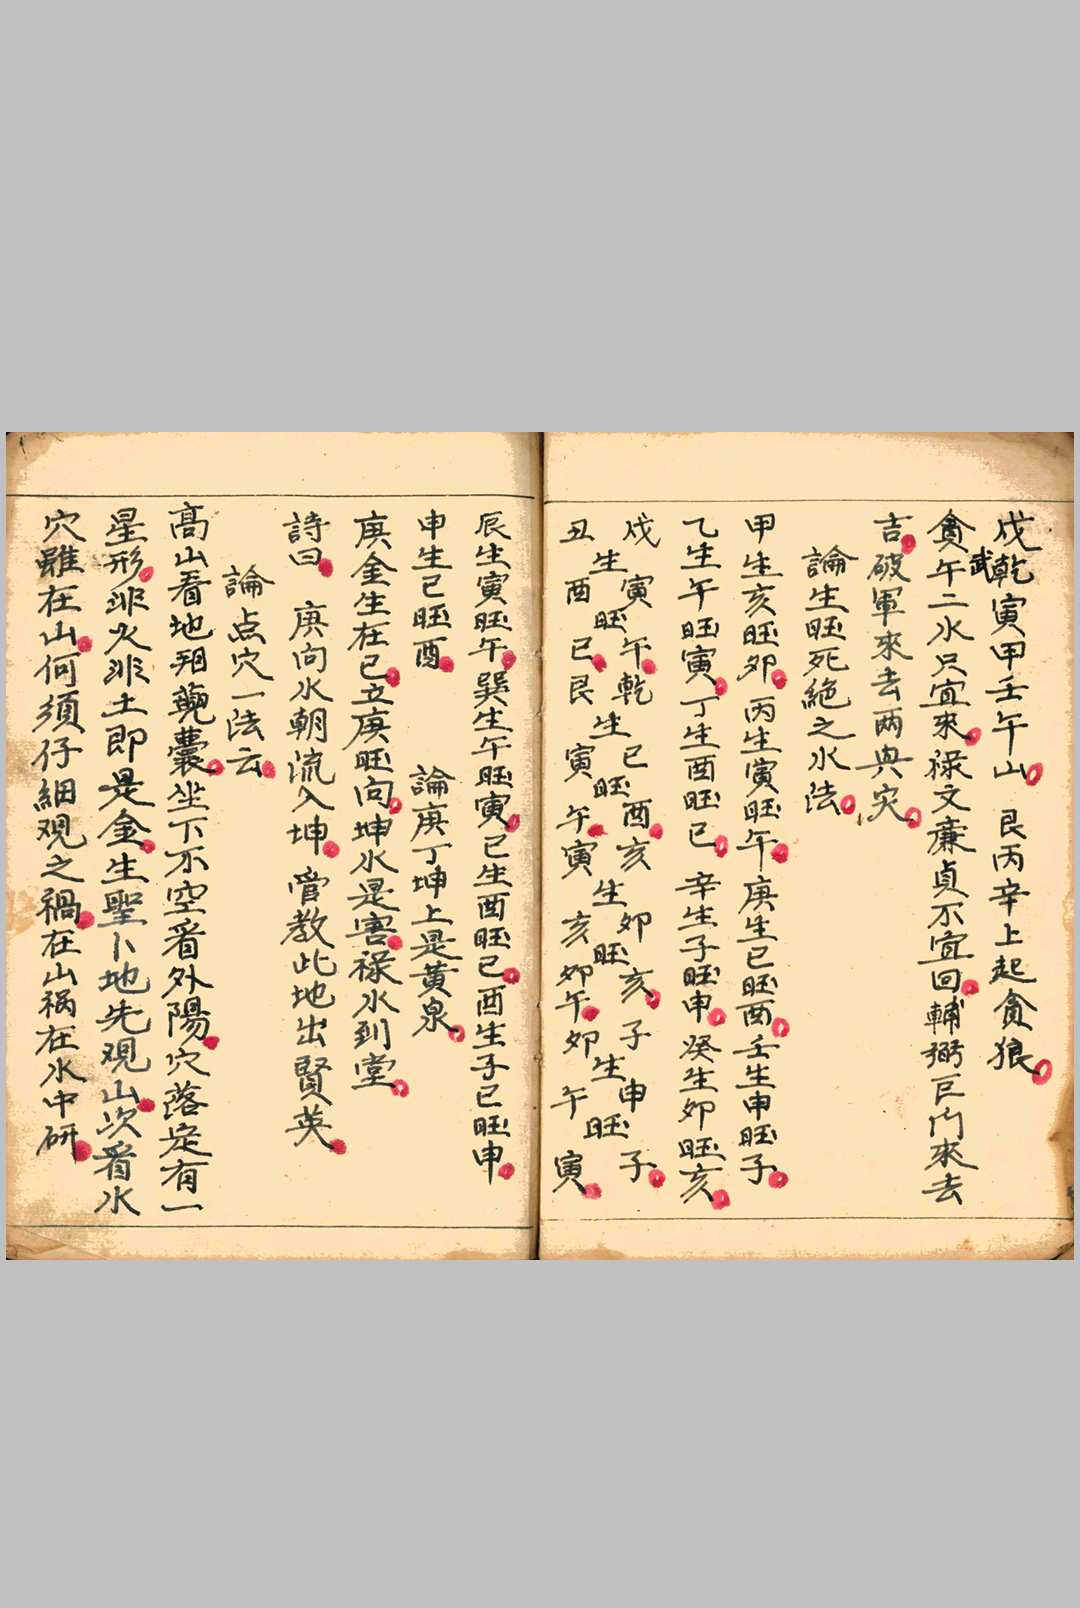 戌乾寅甲壬午山 艮丙辛上起貪狼
貪武午二水只宜來祿文廉貞不宜回輔弼巨門來去
吉破軍來去两與灾
論生旺死絕之水法
甲生亥旺卯 丙生寅旺午庚生巳旺酉壬生申旺子
乙生午旺寅丁生酉旺巳 辛生子旺申癸生卯旺亥
戌 寅 午乾 巳 酉亥 卯 亥 子 申 子
生 旺 生 旺 生 旺 生 旺
丑 酉 巳艮 寅 午寅 亥卯午卯 午 寅
辰生寅旺午巽生午旺寅巳生酉旺巳酉生子巳旺申
申生巳旺酉 論庚丁坤上是黃泉
庚金生在巳立庚旺向坤水是害祿水到堂
詩曰 庚向水朝流入坤管教此地出賢英
論点穴一法云
高山看地囊坐下不空看外陽穴落定有一
星形非火非土即是金生聖卜地先观山次看水
穴雖在山何須仔細观之禍在山祸在水中研